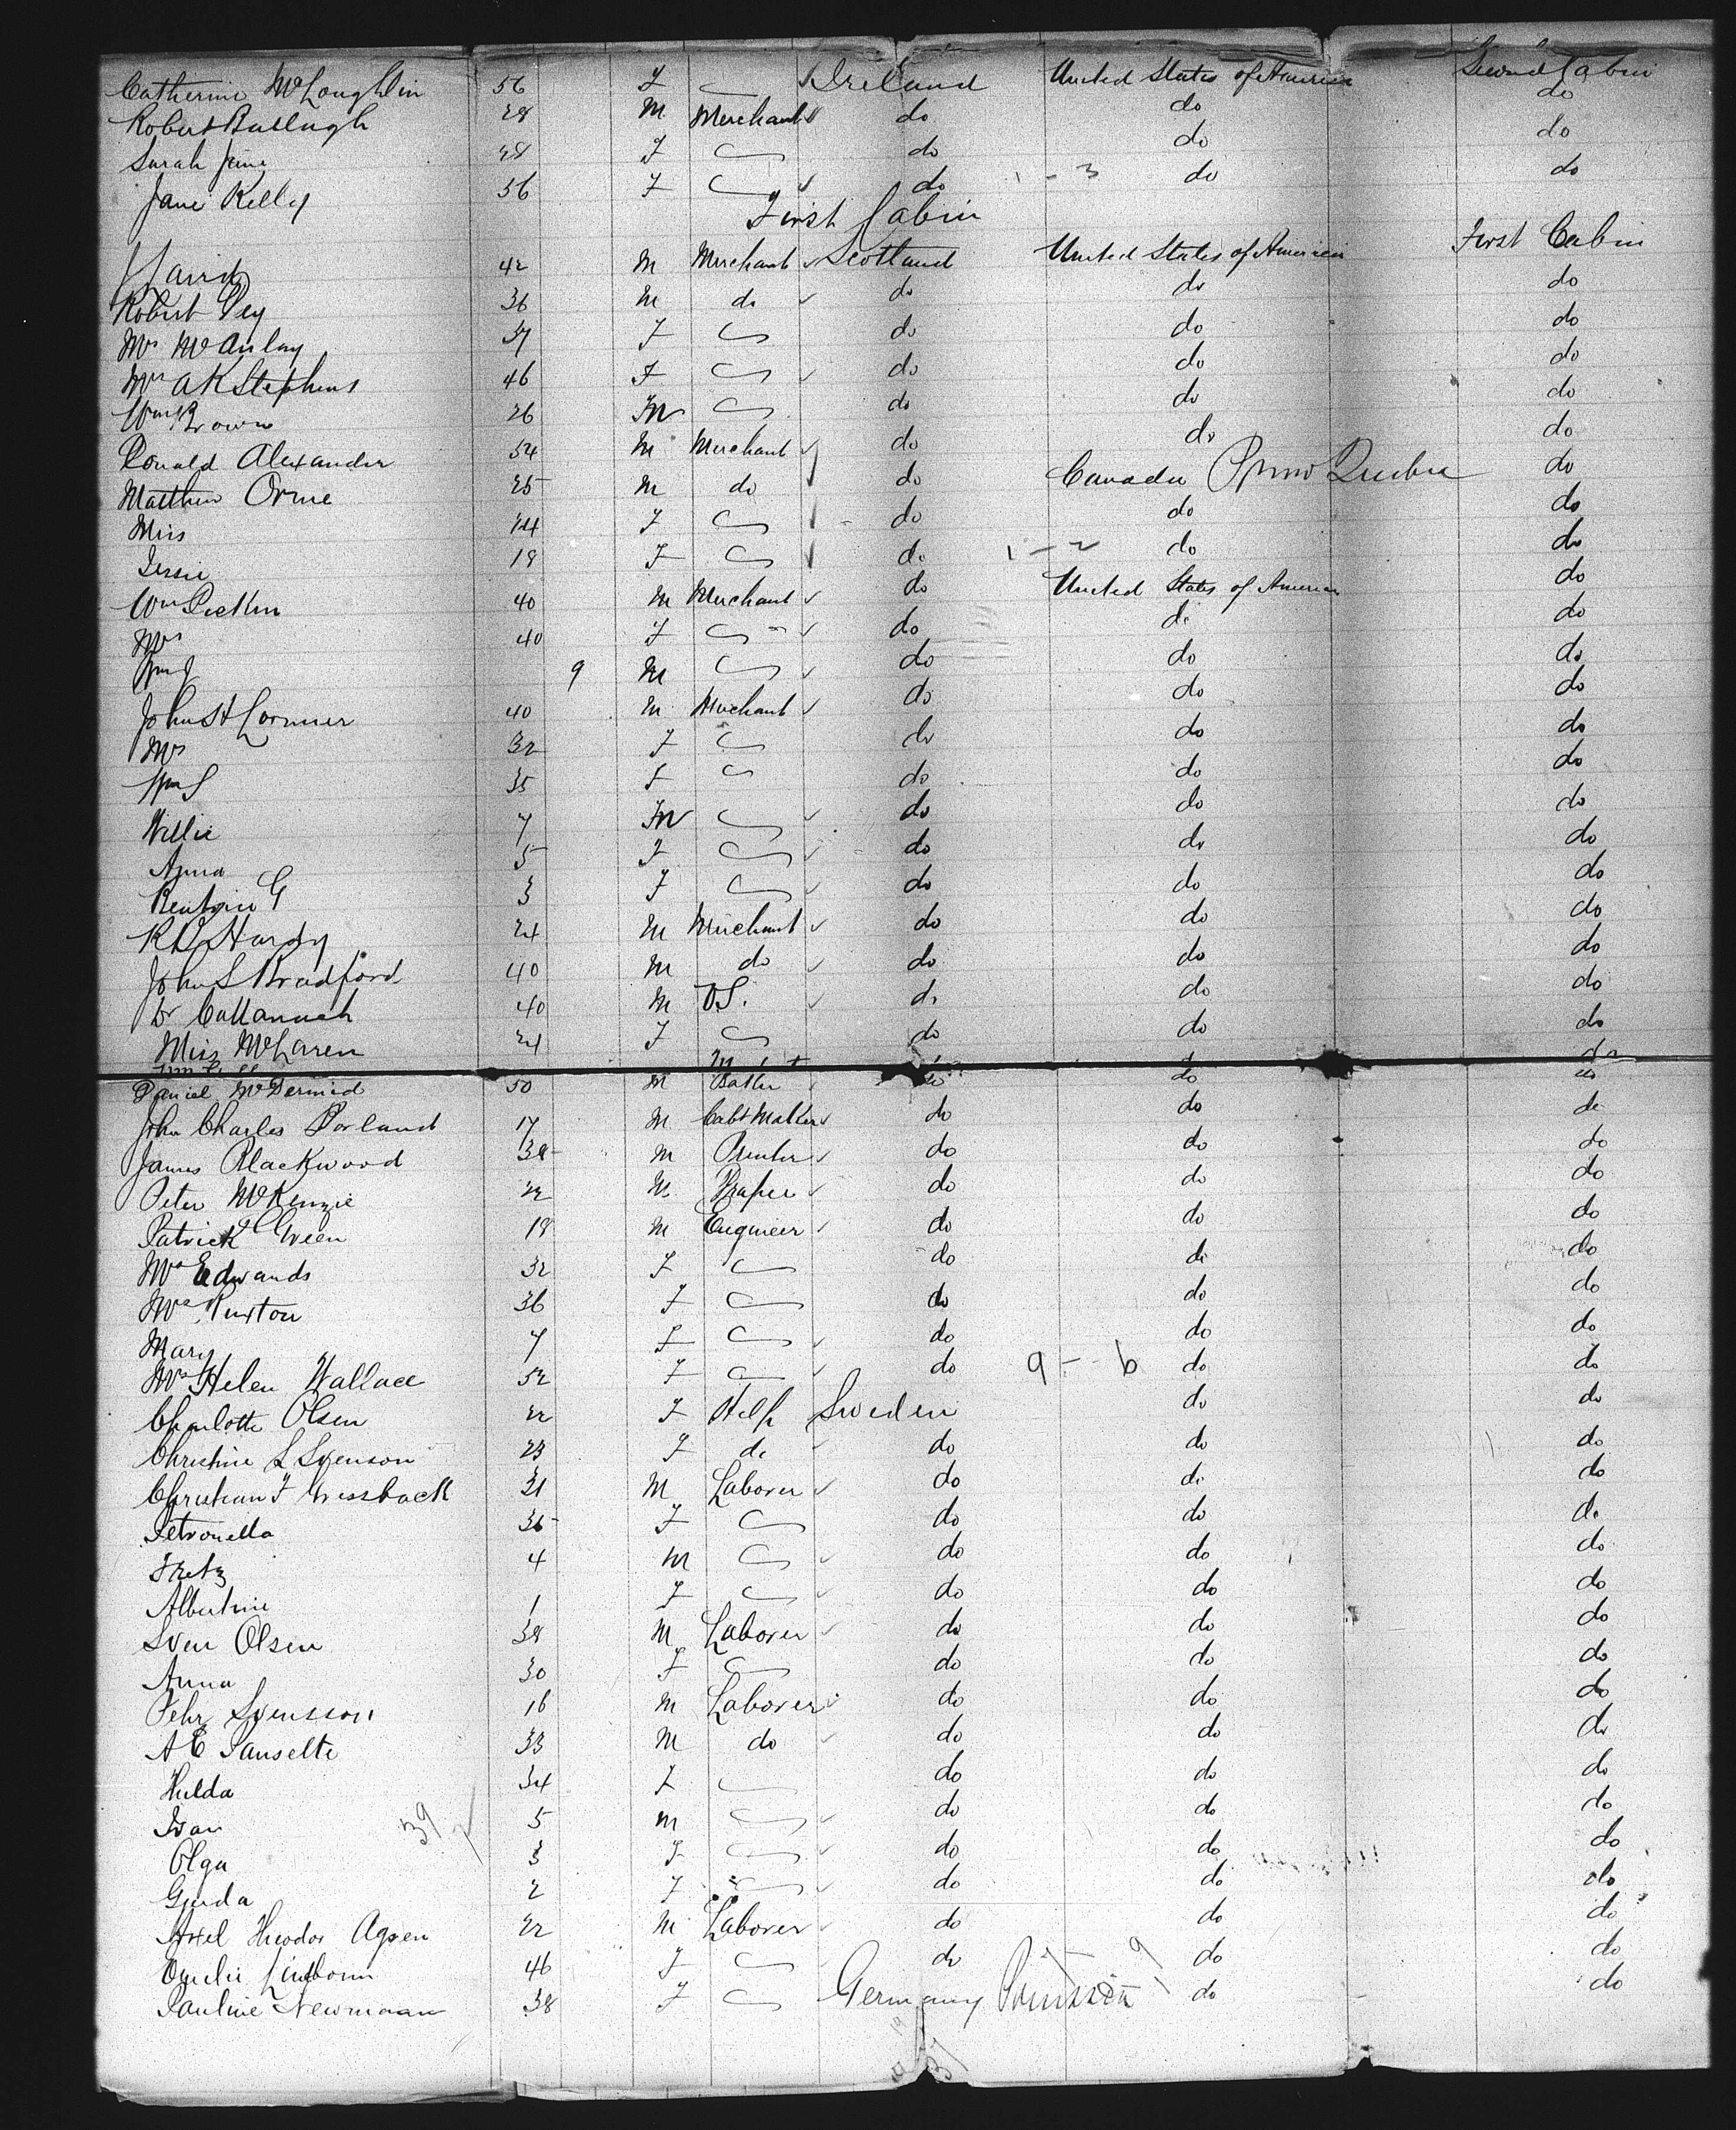 Catherine McLoughlin 56 F Ireland United States of America Second Cabin
Robert 28 M Merchant do do do
Sarah Jane 28 F do do do
Jane Kelly 56 F do 1 - 3 do do
First Cabin
42 M Merchant Scotland United States of America First Cabin
Robert 36 M do do do do
Mrs McAulay F do do do
Mrs A K Stephens 46 F do do do
Wm Brown 26 M do do do
Donald Alexander 54 M Merchant do do do
Matthew Orme 25 M do do Canada do
Miss F do do do
Jessie 19 F do 1 - 2 do do
Wm 40 M Merchant do United States of America do
Mrs 40 F do do do
9 M do do do
John H Lorimer 40 M Merchant do do do
Mrs 32 F do do do
35 F do do do
Willie 7 M do do do
Anna 5 F do do do
3 F do do do
R D Hardy 24 M Merchant do do do
John S Bradford 40 M do do do do
Dr 40 M do do do
Miss McLaren 24 F do do do
Daniel McDermid 50 M do do do
John Charles 17 M Cabt Maker do do do
James Blackwood 38 M Printer do do do
Peter McKenzie 22 M Draper do do do
Patrick Green 19 M Engineer do do do
Mrs Edwards 32 F do do do
Mrs 36 F do do do
Mary 7 F do do do
Mrs Helen Wallace 52 F do 9 - 6 do do
Charlotte Olsen 22 F Help Sweden do do
Christine L Svenson 23 F do do do do
Christian F 31 M Laborer do do do
Petronella 36 F do do do
Fretz 4 M do do do
Albertine 1 F do do do
Sven Olsen 38 M Laborer do do do
Anna 30 F do do do
Pehr Svensson 16 M Laborer do do do
A E 33 M do do do do
Hulda 34 F do do do
Ivan 39 5 M do do do
Olga 3 F do do do
Gerda 2 F do do do
Axel Theodor 22 M Laborer do do do
Emelie 46 F do 9 do do
Pauline Newmaan 38 F Germany do do
37